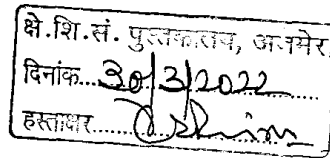 क्षे.शि.सं. पुस्तकालय, अजमेर
दिनांक...30/3/2022
हस्ताक्षर......